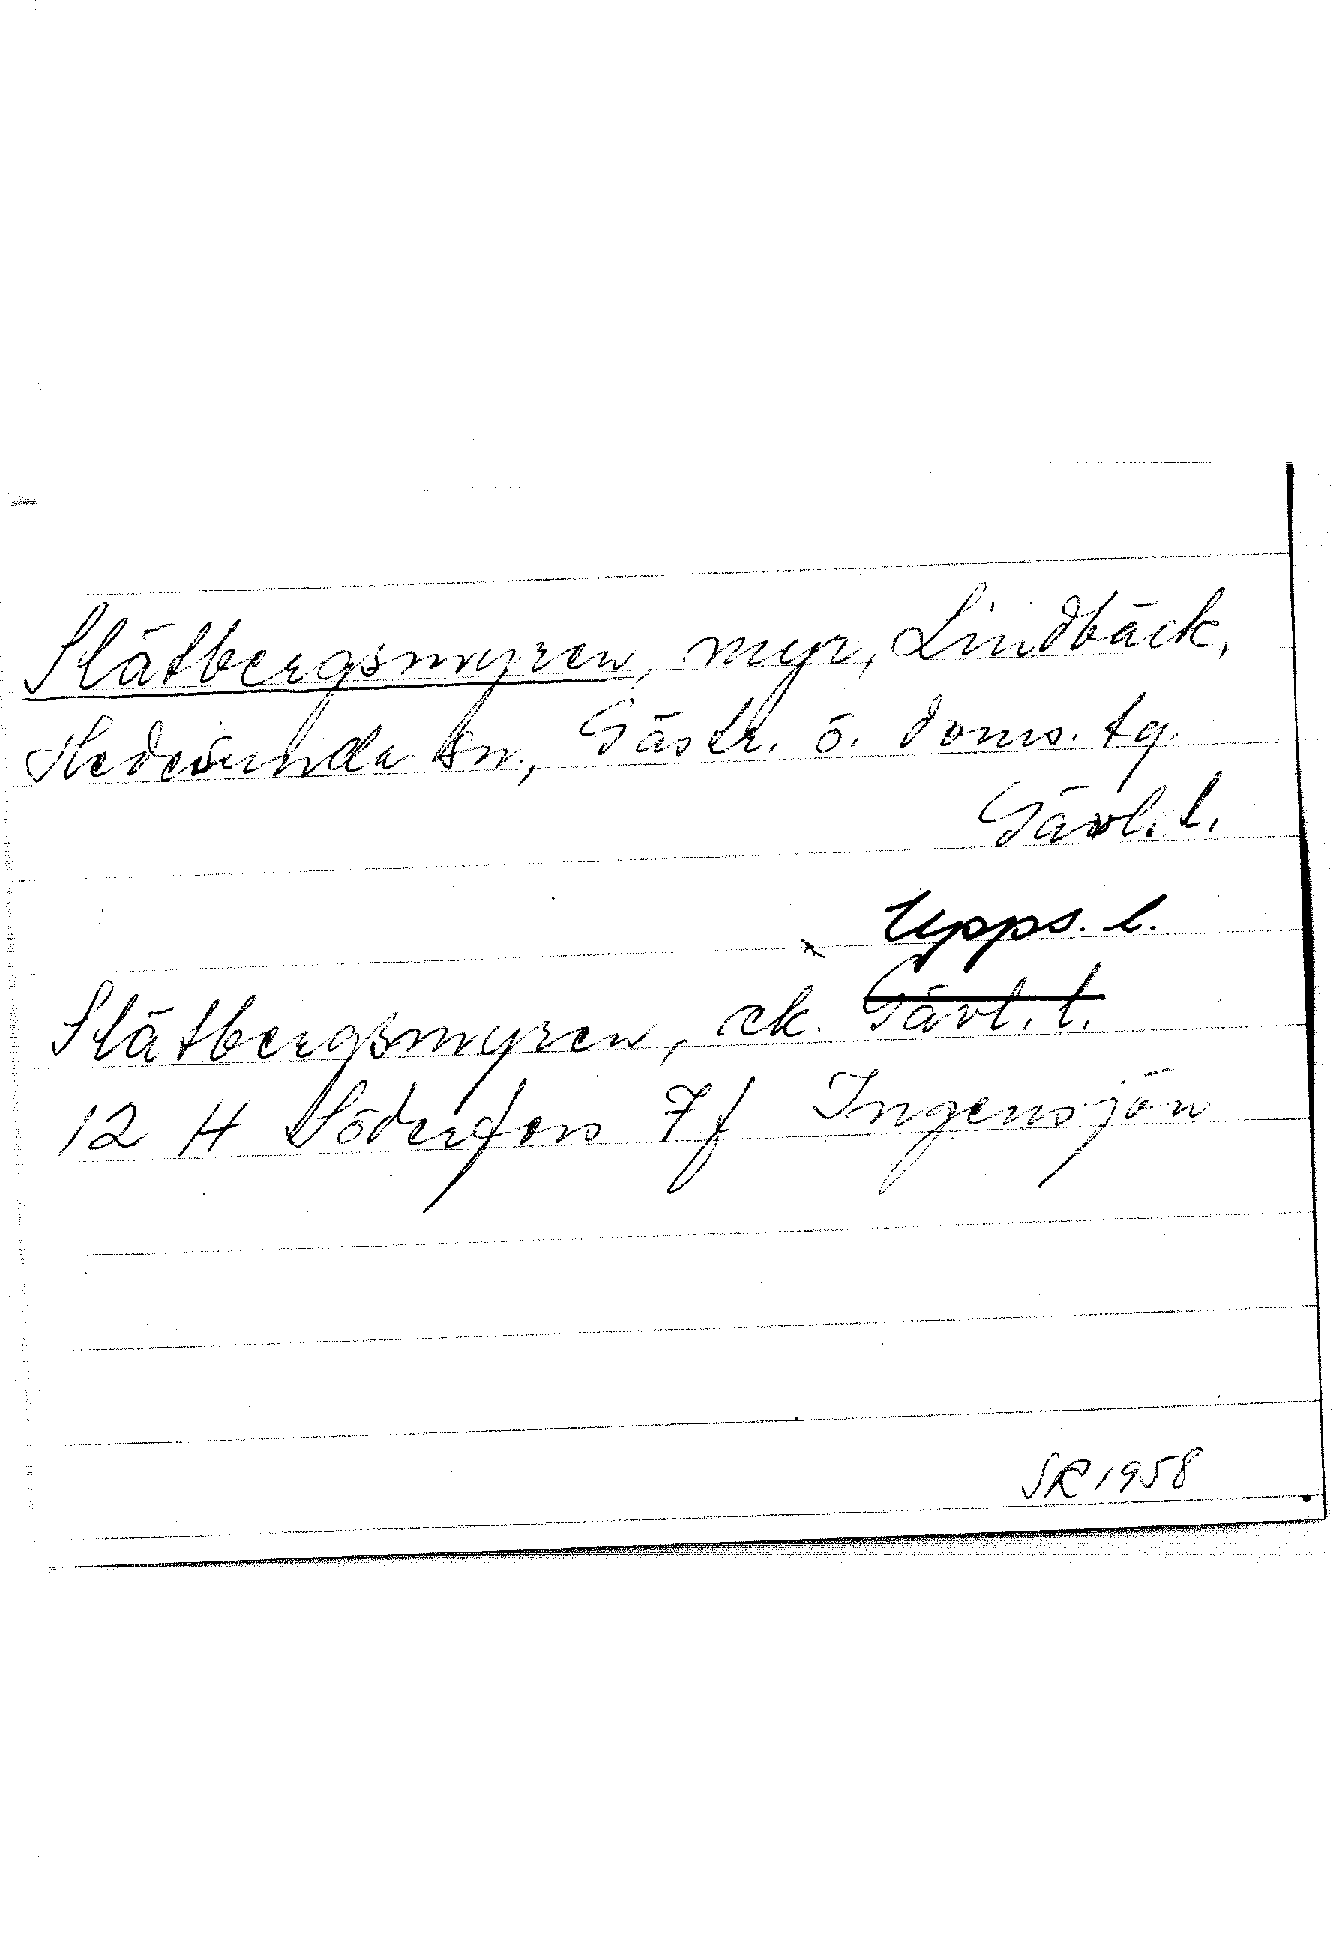 Slätbergsmyren, myr, Lindbäck,
Hedesunda sn., Gästr. ö. doms. tg
Gävl. l.
x Upps. l.
Slätbergsmyren, ek. Gävl. l.
12 H Söderfors 7f Ingensjön
SR 1958